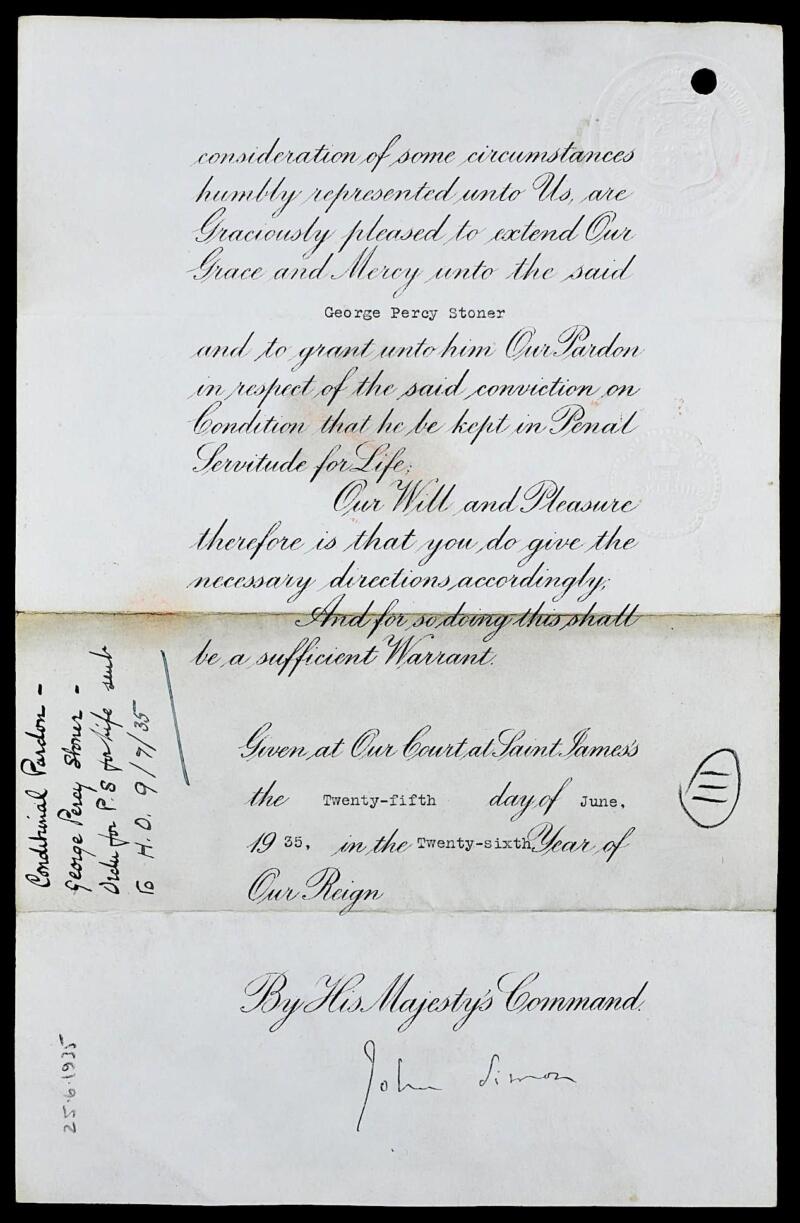 consideration of some circumstances
humbly represented unto Us, are
Graciously pleased to extend Our
Grace and Mercy unto the said
George Percy Stoner
and to grant unto him Our Pardon
in respect of the said conviction on
Condition that he be kept in Penal
Servitude for Life;
Our Will and Pleasure
therefore is that you do give the
necessary directions accordingly;
And for so doing this shall
be a sufficient Warrant.
Given at Our Court at Saint James's
the Twenty-fifth day of June,
1935, in the Twenty-sixth Year of
Our Reign
By His Majesty's Command.
John Simon
Conditional Pardon -
George Percy Stoner -
Order for P.S for life sent
to H.O. 9/7/35
111
25.6.1935